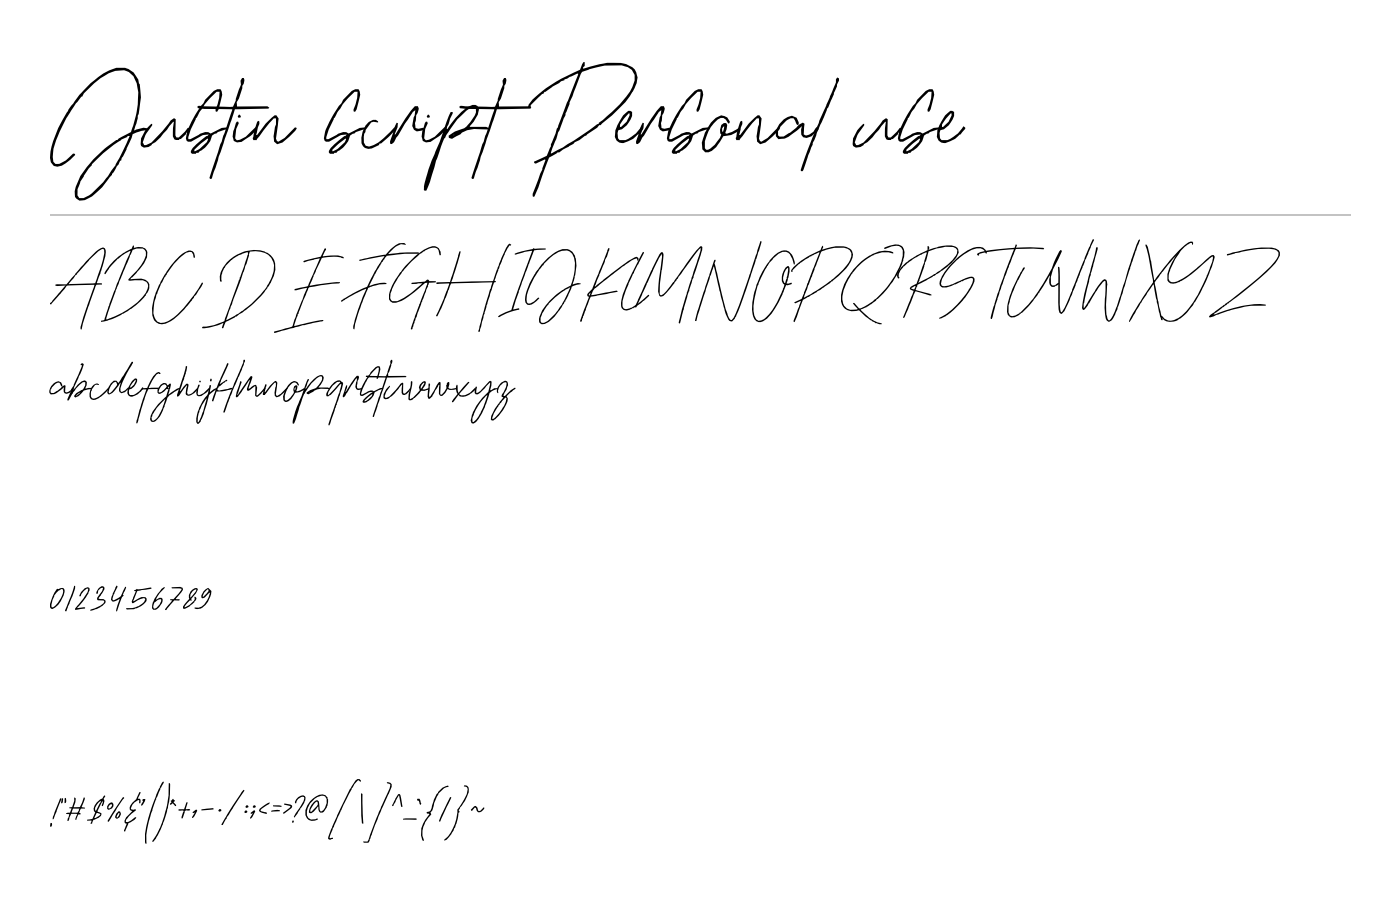 Justin script Personal use
ABCDEFGHIJKLMNOPQRSTUVWXYZ
abcdefghijklmnopqrstuvwxyz
0123456789
!"#$%&'()*+,-./:;<=>?@[\]^_`{|}~